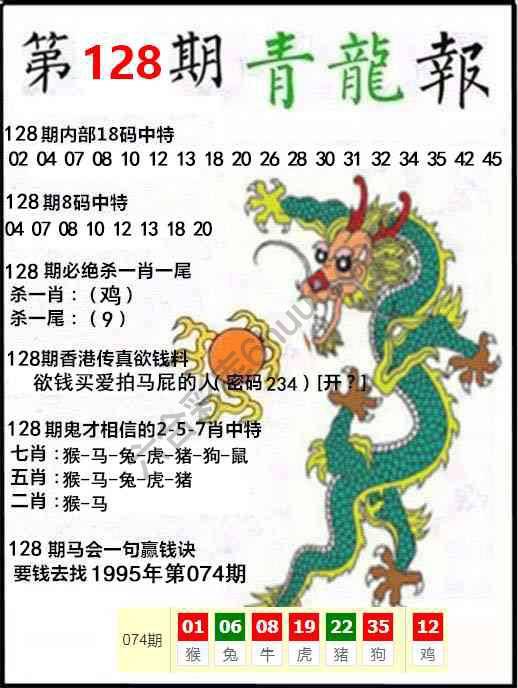 第128期青龍報
128期内部18码中特
02 04 07 08 10 12 13 18 20 26 28 30 31 32 34 35 42 45
128期8码中特
04 07 08 10 12 13 18 20
128期必绝杀一肖一尾
杀一肖：（鸡）
杀一尾：（9）
128期香港传真欲钱料
欲钱买爱拍马屁的人(密码234)[开？]
128期鬼才相信的2-5-7肖中特
七肖：猴-马-兔-虎-猪-狗-鼠
五肖：猴-马-兔-虎-猪
二肖：猴-马
128期马会一句赢钱诀
要钱去找1995年第074期
074期 01 06 08 19 22 35 12
猴 兔 牛 虎 猪 狗 鸡